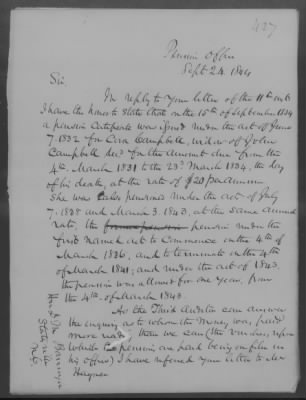 427
Pension Office
Sept. 24. 1844
Sir,
In reply to your letter of the 11th inst
I have the honor to state that on the 15th of September 1834
a pension Certificate was issued under the act of June
7. 1832 for Cara Campbell, widow of John
Campbell decd for the amount due from the
4th March 1831 to the 23d March 1834, the day
of his death, at the rate of $20 per annum.
She was also pensioned under the act of July
7. 1838 and March 3. 1843, at the same annual
rate, the pension under the
first named act to Commence on the 4th of
March 1836, and to terminate on the 4th
of March 1841; and under the act of 1843,
the pension was allowed for one year, from
the 4th of March 1843.
As the Third Auditor can answer
the inquiry as to whom the Money was paid
more readily than we can (the vouchers upon
which the pension on paid being on file in
his office) I have referred your letter to Mr
Hagner
Statesville
N.C.